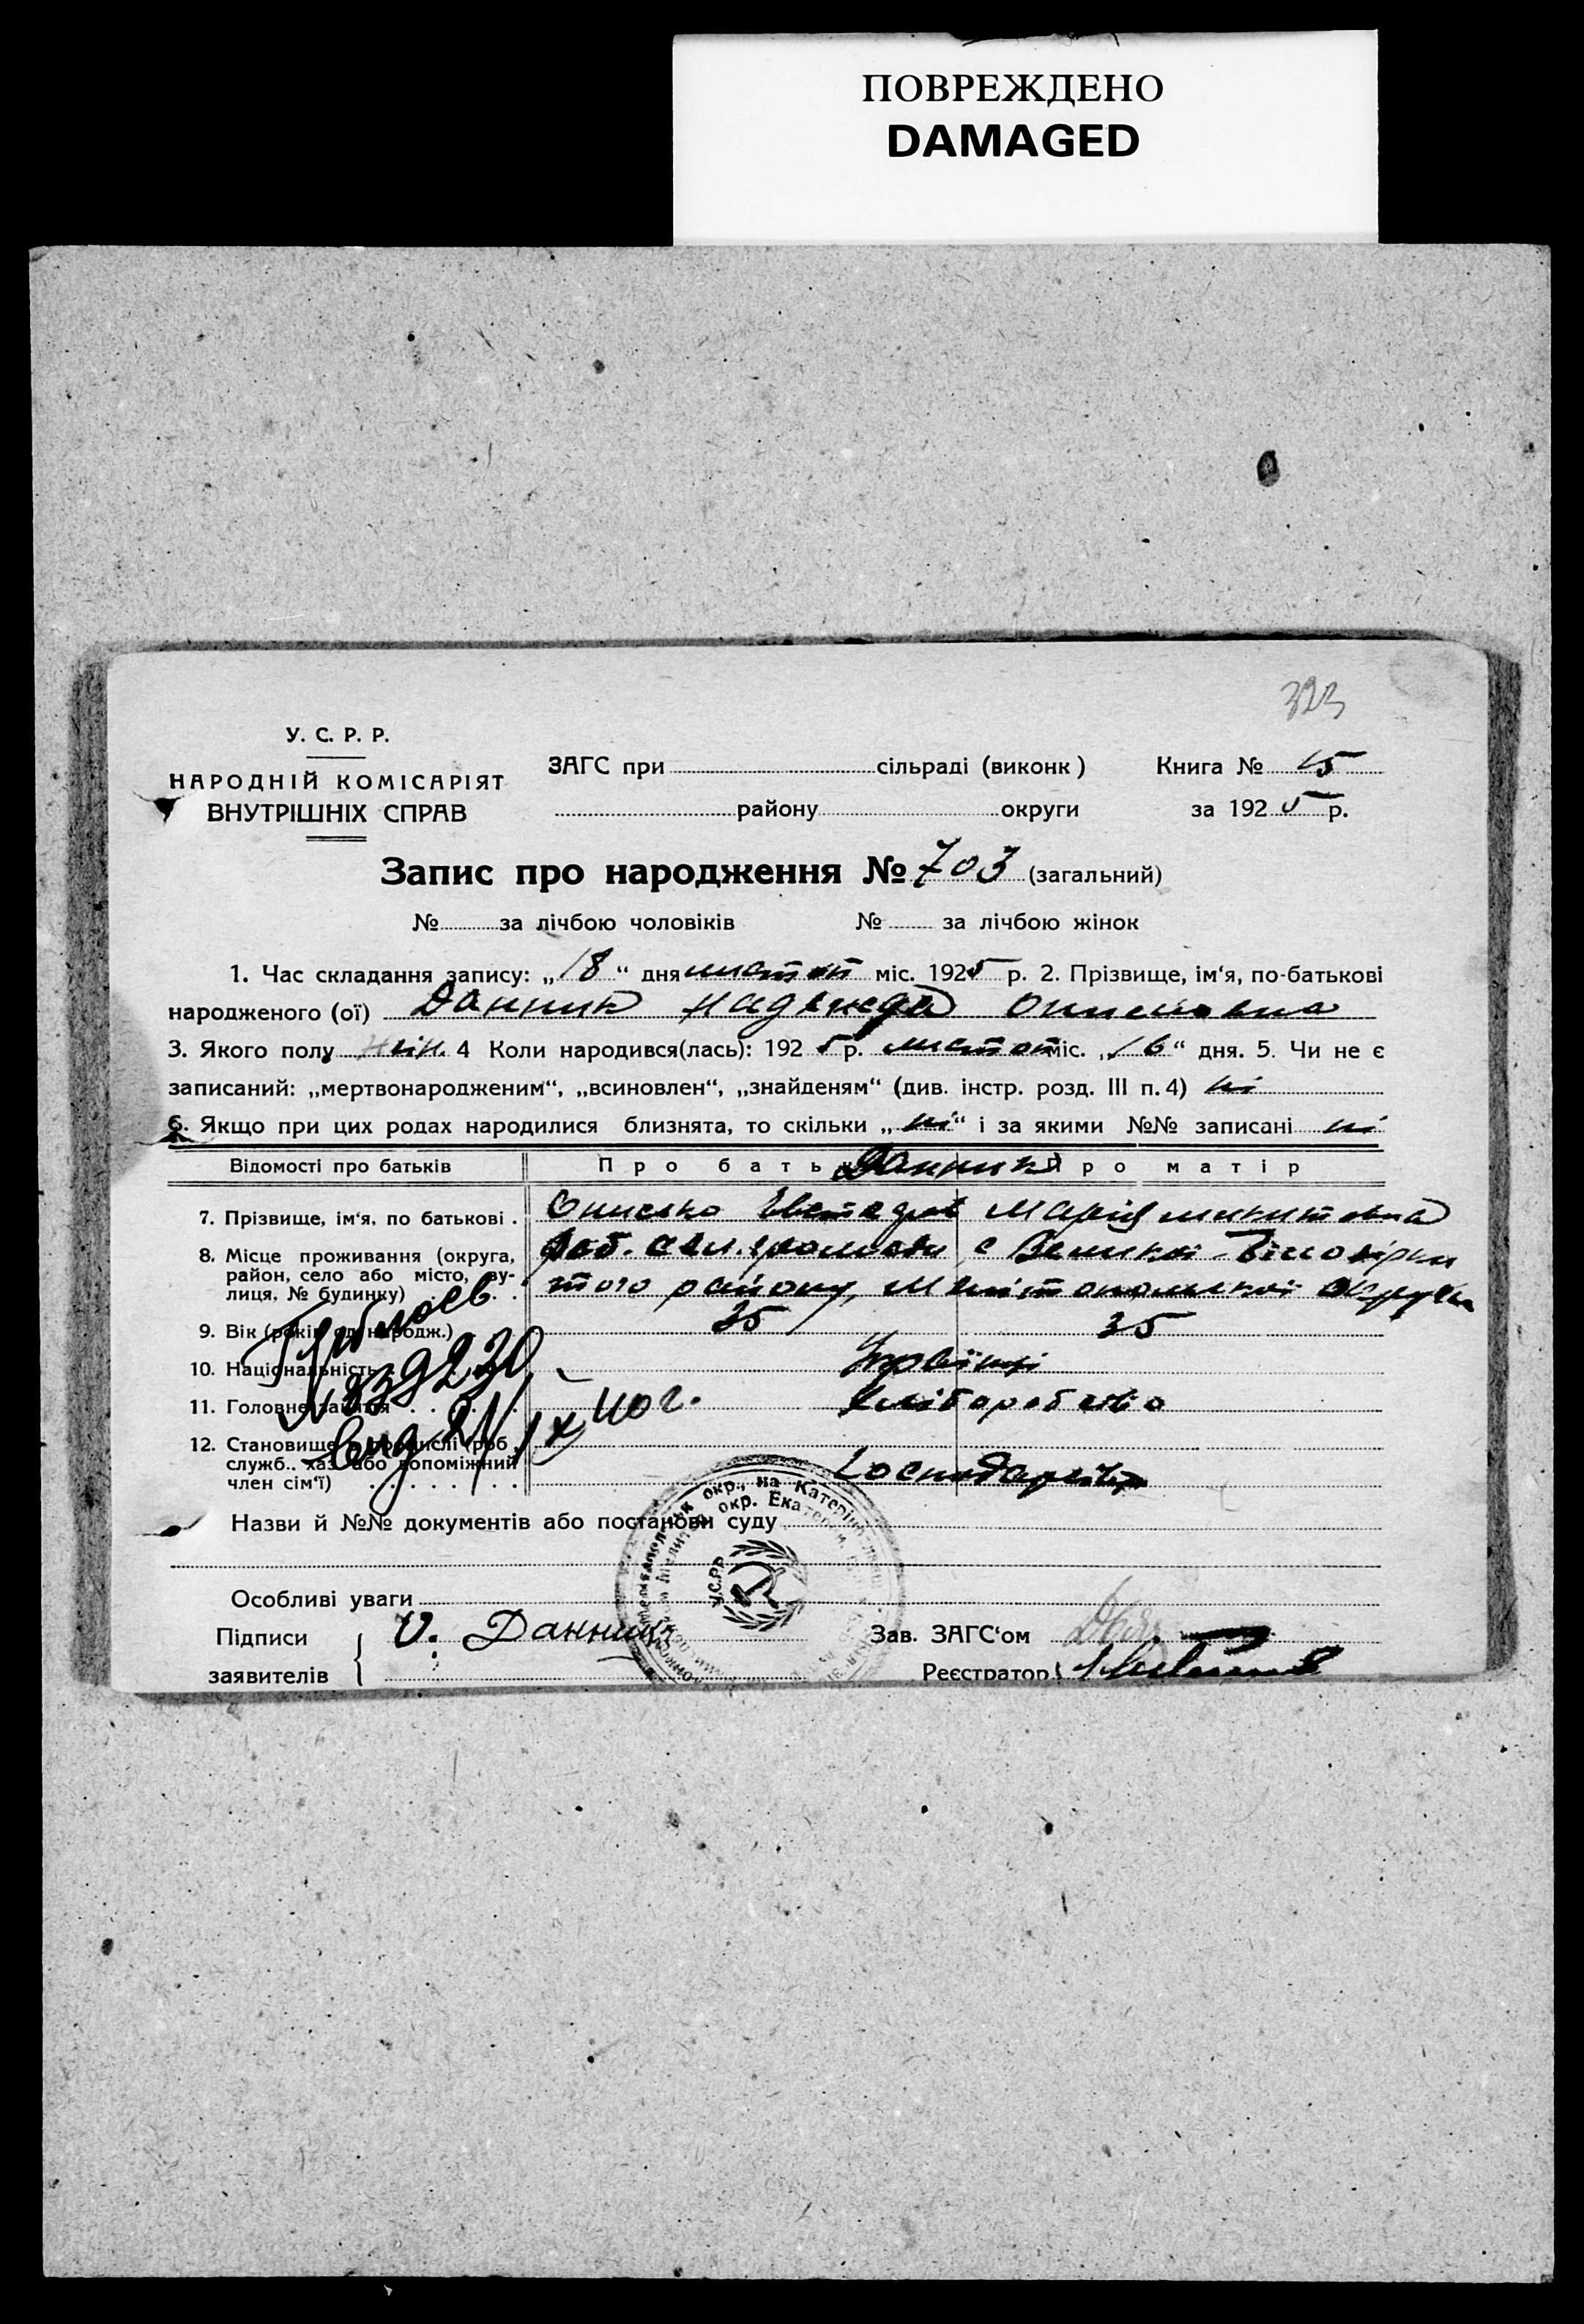 ПОВРЕЖДЕНО
DAMAGED
323
У. С. Р. Р.
НАРОДНІЙ КОМІСАРІЯТ
ВНУТРІШНІХ СПРАВ
ЗАГС при сільраді (виконк)
району округи
Книга № 15
за 1925 р.
Запис про народження № 703 (загальний)
№ за лічбою чоловіків № за лічбою жінок
1. Час складання запису: „18“ дня листоп міс. 1925 р. 2. Прізвище, ім'я, по-батькові
народженого (ої) Данник Надежда
3. Якого полу жін. 4 Коли народився(лась): 1925 р. листоп міс. „16“ дня. 5. Чи не є
записаний: „мертвонародженим“, „всиновлен“, „знайденям“ (див. інстр. розд. III п. 4) ні
6. Якщо при цих родах народилися близнята, то скільки „ні“ і за якими №№ записані ні
Відомості про батьків Про батька Про матір
Данник
7. Прізвище, ім'я, по батькові . Марія
8. Місце проживання (округа, с Великої Білозірки
район, село або місто, ву- того району, Мелітопольської округи
лиця, № будинку) . . .
9. Вік (років од народж.) 35 35
10. Національність
11. Головне заняття . . . . Хліборобство
12. Становище в промислі (роб.,
служб., хаз. або допоміжний
член сім'ї) . . . . . . . .
№ 839230
40 г.
Назви й №№ документів або постанови суду
Особливі уваги
Підписи
заявителів
О. Данник
У.С.Р.Р
Зав. ЗАГС'ом
Реєстратор